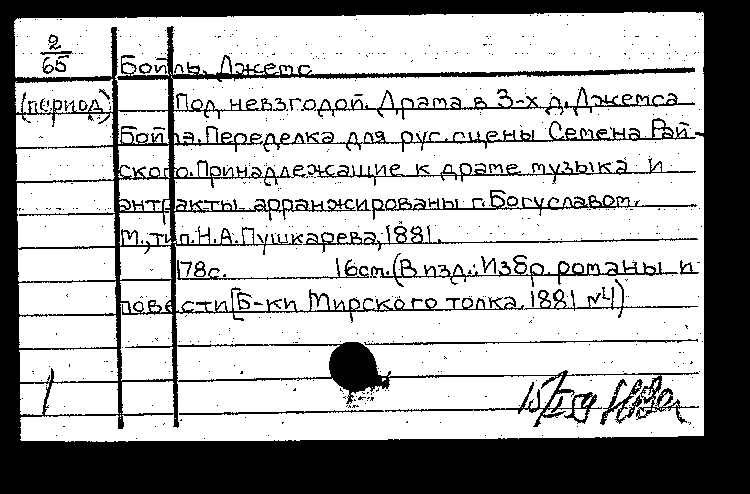 2
65
Бойль, Джемс
(период)
Под невзгодой. Драма в 3-х д. Джемса
Бойля. Переделка для рус. сцены Семена Рай-
ского. Принадлежащие к драме музыка и
антракты арранжированы г. Богуславом.
М., тип. Н.А. Пушкарева, 1881.
178с. 16см. (В изд.: Избр. романы и
повести [Б-ки Мирского толка. 1881 №4)
1